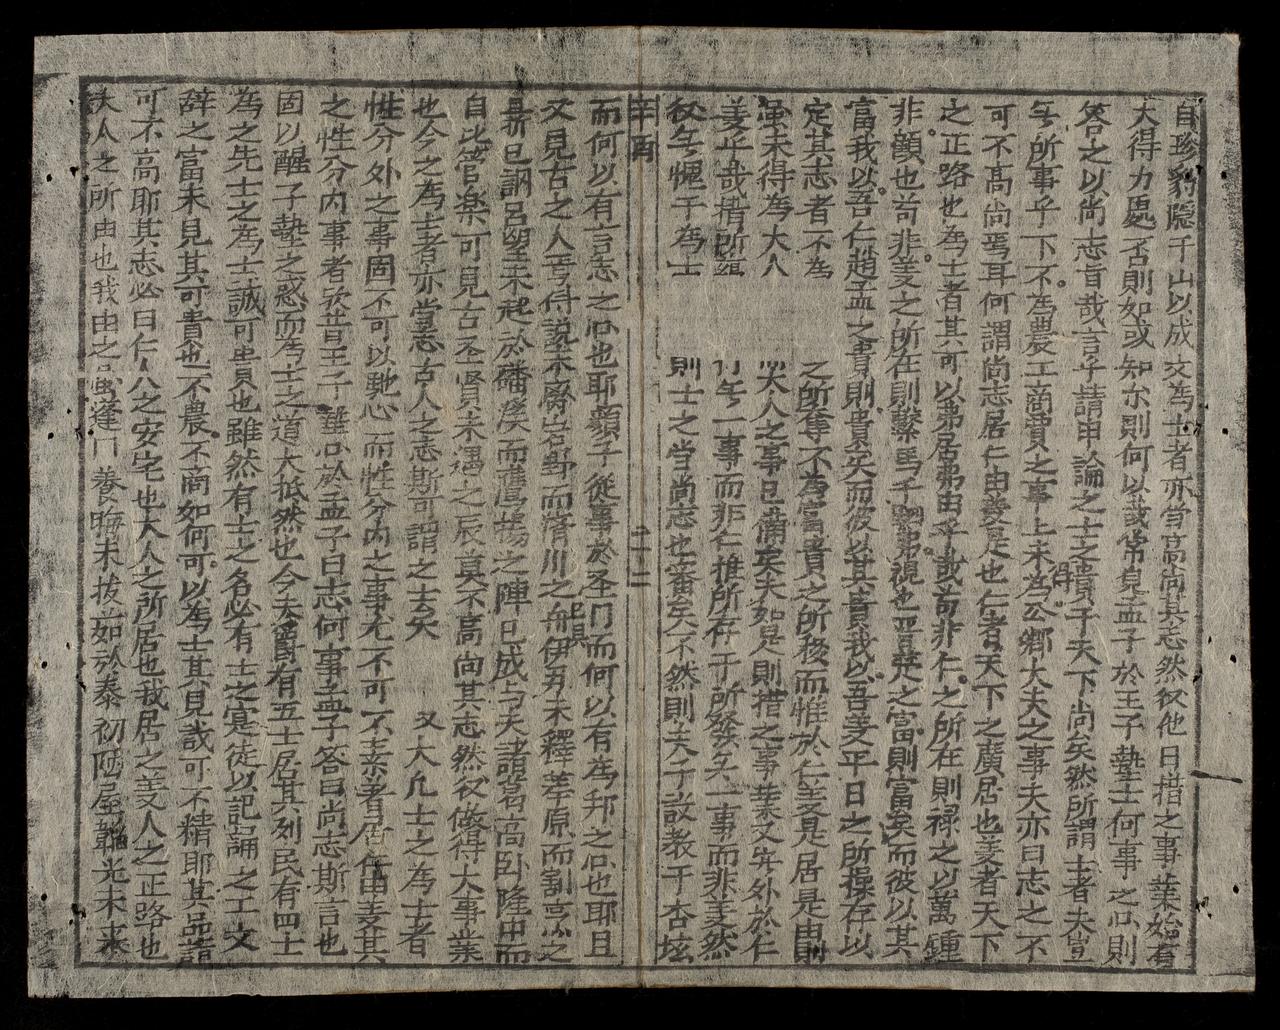 自珍豹隱于山以成文爲士者亦當高尚其志然後他日措之事業始有
大得力處否則如或知尔則何以哉常見孟子於王子墊士何事之心則
答之以尚志旨哉言乎請申論之士之貴于天下尚矣然所謂士者夫豈
無所事乎下不爲農工商賈之事上未爲得公卿大夫之事夫亦曰志之不
可不高尚焉耳何謂尚志居仁由義是也仁者天下之廣居也義者天下
之正路也爲士者其可以弗居弗由乎哉苟非仁之所在則祿之以萬鍾
非顧也苟非義之所在則繫馬千駟弗視也晋楚之富則富矣而彼以其
富我以吾仁趙孟之貴則貴矣而彼以其貴我以吾義平日之所操存以
定其志者不爲 之所奪不爲富貴之所移而惟於仁義是居是由則
雖未得爲大人 大人之事已備矣夫如是則措之事業又豈外於仁
義乎哉措所 行無一事而非仁推所存于所發無一事而非義然
後無愧于爲士 則士之當尚志也審矣不然則夫子設教于杏坛
辛酉
二十二
而何以有言志之心也耶顔子從事於圣門而何以有爲邦之心也耶且
又見古之人乎傅說未廢岩野而濟川之舟已具伊尹未釋莘原而割烹之
鼎已調呂望未起於磻溪而鷹揚之陣已成与夫諸葛高卧隆中而
自比管楽可見古圣賢未遇之辰莫不高尚其志然後做得大事業
也今之爲士者亦當志古人之志斯可謂之士矣 又大凡士之爲士者
性分外之事固不可以馳心而性分內之事尤不可不素者居仁由義其
之性分內事者欤昔王子墊心於孟子曰志何事孟子答曰尚志斯言也
固以醒子墊之惑而爲士之道大抵然也今夫爵有五士居其列民有四士
爲之先士之爲士誠可貴也雖然有士之名必有士之寔徒以記誦之工文
辞之富未見其可貴也不農不商如何可以爲士其見哉可不精耶其品詣
可不高耶其志必曰仁人之安宅也大人之所居也我居之義人之正路也
大人之所由也我由之 蓬門養晦未拔茹於泰初陋屋韜光未来